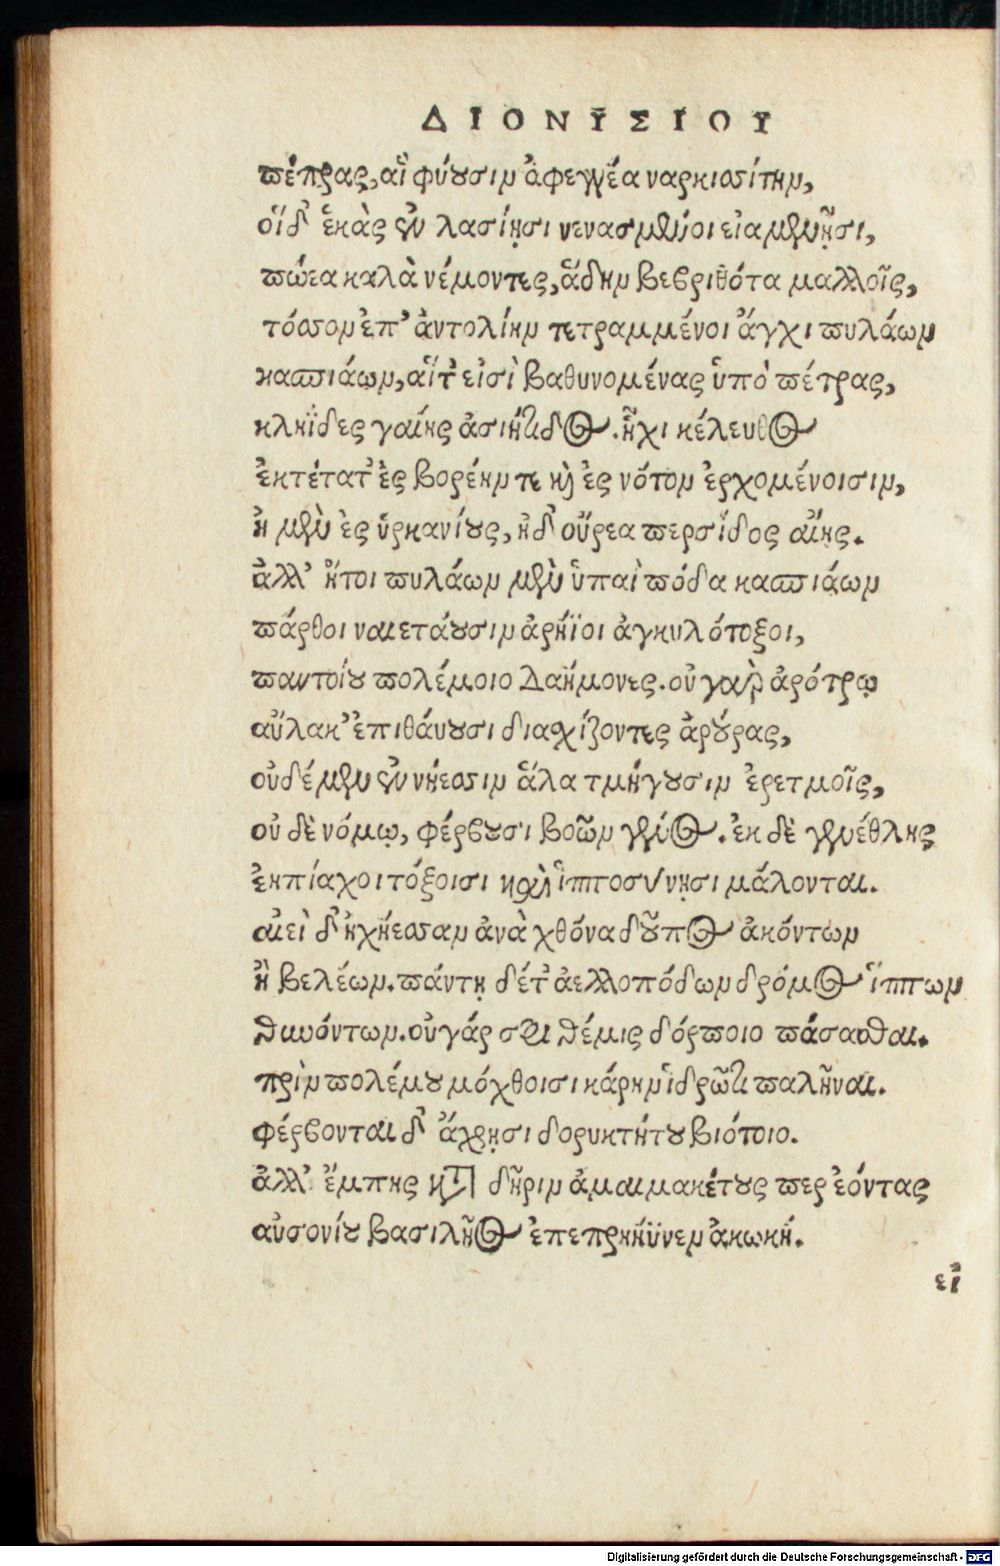 ΔΙΟΝΥΣΙΟΥ
πέτρας, αἳ φύουσιν ἀφεγγέα ναρκισσίτην,
οἵδ' ἑκὰς ἐν λασίῃσι νενασμένοι εἰαμενῇσι,
πώεα καλὰ νέμοντες, ἅδην βεβριθότα μαλλοῖς,
τόσσον ἐπ' ἀντολίην τετραμμένοι ἄγχι πυλάων
κασπιάων, αἵτ' εἰσὶ βαθυνομένας ὑπὸ πέτρας,
κληῖδες γαίης ἀσιήτιδος. ἧχι κέλευθος
ἐκτέτατ' ἐς βορέην τε καὶ ἐς νότον ἐρχομένοισιν,
ἡ μὲν ἐς ὑρκανίους, ἡδ' οὔρεα περσίδος αἴης.
ἀλλ' ἤτοι πυλάων μὲν ὑπαὶ πόδα κασπιάων
πάρθοι ναιετάουσιν ἀρήϊοι ἀγκυλότοξοι,
παντοίου πολέμοιο δαήμονες. οὐ γὰρ ἀρότρῳ
αὔλακ' ἐπιθύουσι διασχίζοντες ἀρούρας,
οὐδέ μεν ἐν νήεσσιν ἅλα τμήγουσιν ἐρετμοῖς,
οὐδὲ νόμῳ, φέρβουσι βοῶν γένος. ἐκ δὲ γενέθλης
ἐκπίαχοι τόξοισι καὶ ἱπποσύνῃσι μάλονται.
αἰεὶ δ' ἠχήεσσαν ἀνὰ χθόνα δοῦπος ἀκόντων
ἢ βελέων. πάντῃ δέτ' ἀελλοπόδων δρόμος ἵππων
θυόντων. οὐ γάρ σφι θέμις δόρποιο πάσασθαι.
πρὶν πολέμου μόχθοισι κάρην ἱδρῶτι παλῆναι.
φέρβονται δ' ἄγρῃσι δορυκτήτου βιότοιο.
ἀλλ' ἔμπης κατὰ δῆριν ἀμαιμακέτους περ ἐόντας
αὐσονίου βασιλῆος ἐπεπρηήϋνεν ἀκωκή.
εἰ
Digitalisierung gefördert durch die Deutsche Forschungsgemeinschaft - DFG